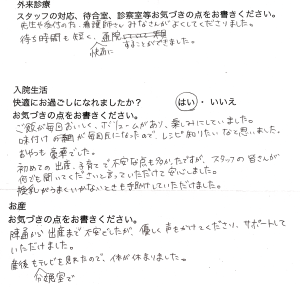 外来診療
スタッフの対応、待合室、診察室等お気づきの点をお書きください。
先生や受付の方、看護師さん みなさんがよくしてくださりました。
待ち時間も短く、通院
快適に
することができました。
入院生活
快適にお過ごしになれましたか? はい・いいえ
お気づきの点をお書きください。
ご飯が毎回おいしく、ボリュームがあり、楽しみにしていました。
味付けや が毎回 になったので、レシピ知りたいなと思いました。
おやつも豪華でした。
初めての出産、子育てで不安な点も多かったですが、スタッフの皆さんが
何でも聞いてくださいと言っていただけて安心しました。
授乳がうまくいかないときも手助けしていただけました。
お産
お気づきの点をお書きください。
陣痛から出産まで不安でしたが、優しく声をかけてくださり、サポートして
いただけました。
産後もテレビを見れたので、体が休まりました。
分娩室で